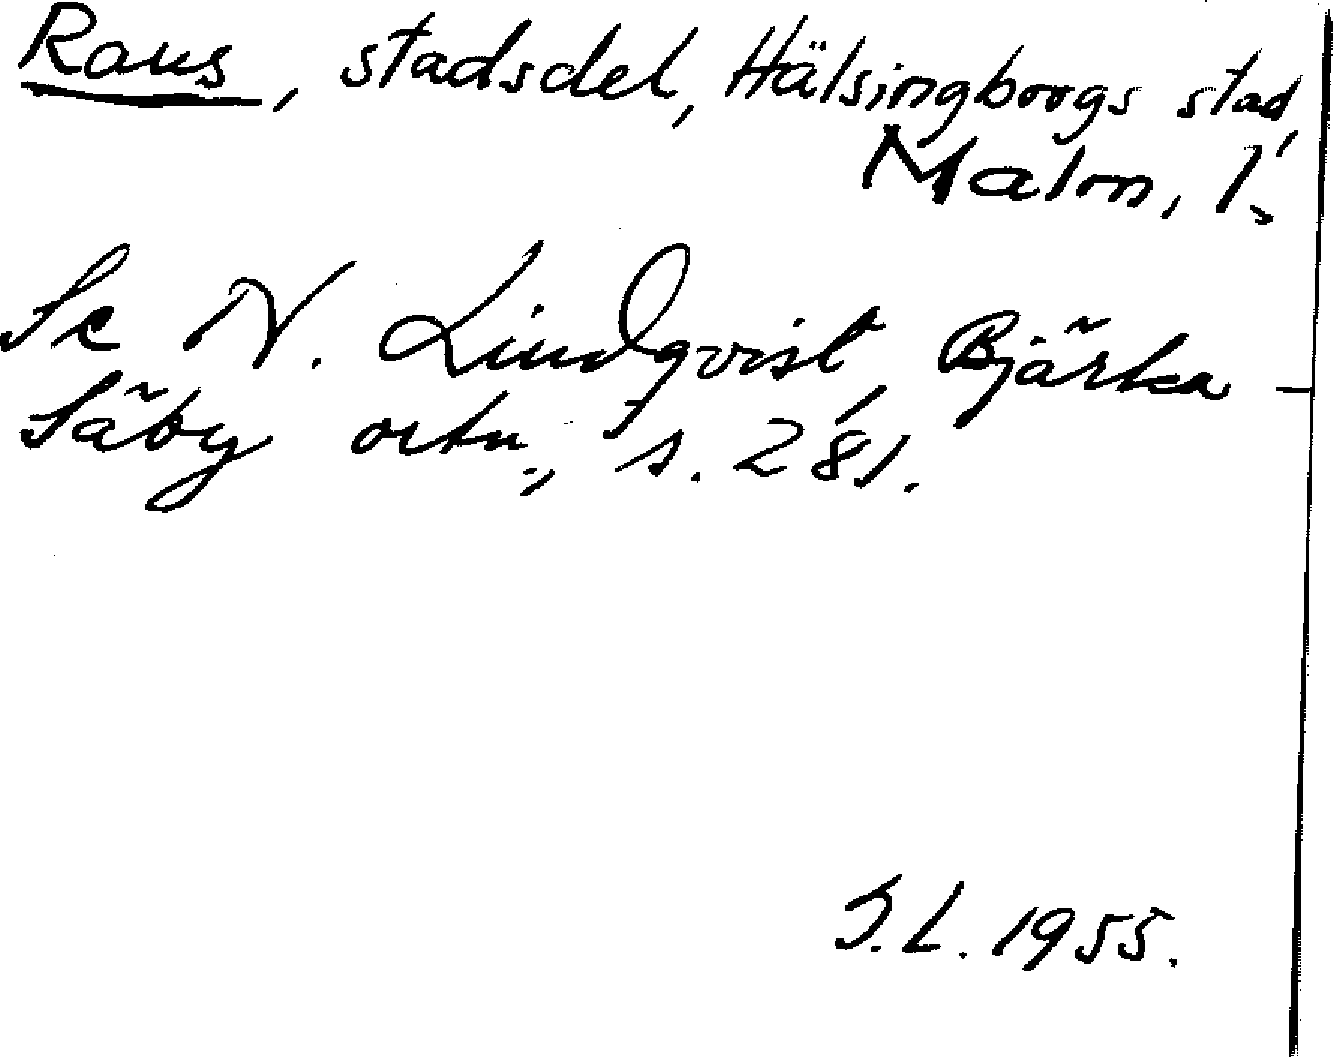 Raus, stadsdel, Hälsingborgs stad,
Malm. l.
Se N. Lindqvist, Bjärka-
Säby ortn., s. 281.
I.L. 1955.